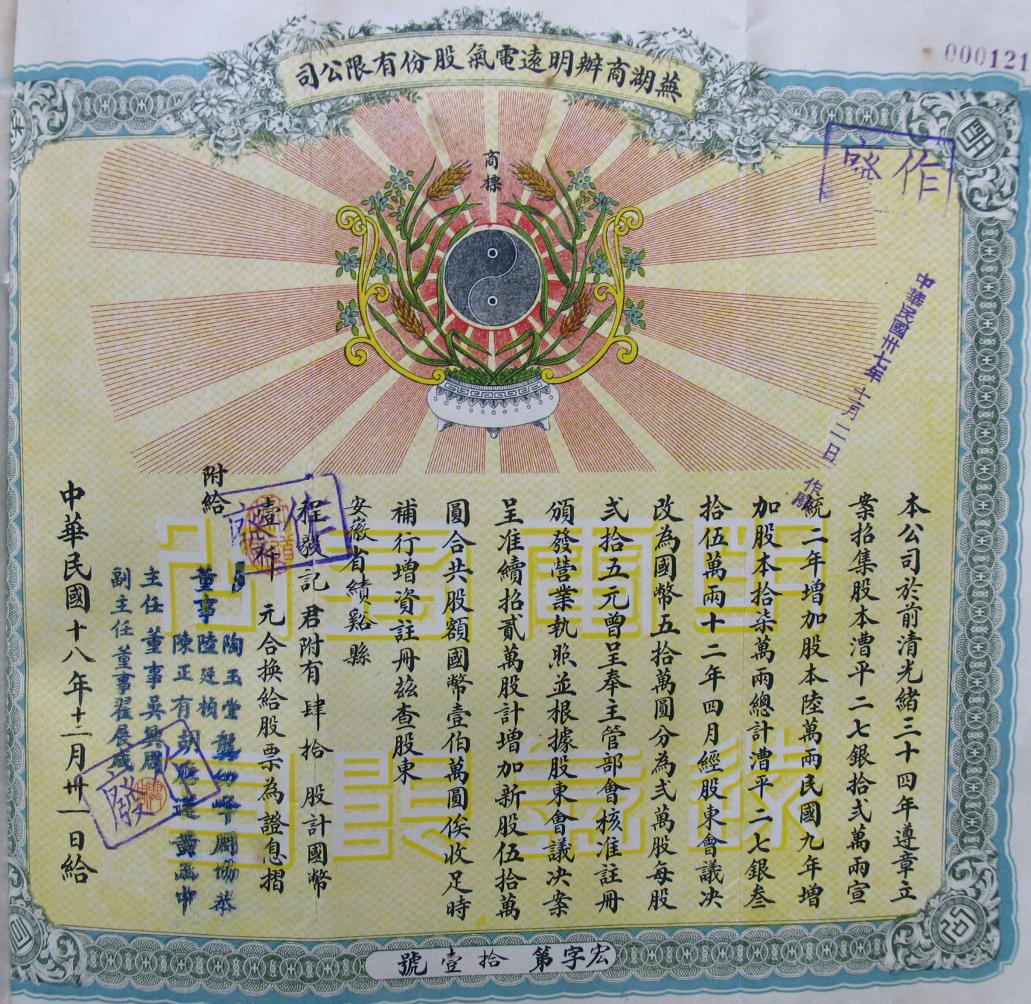 000121
蕪湖商辦明遠電氣股份有限公司
商標
作廢
中華民國卅七年十一月二日
作廢
本公司於前清光緒三十四年遵章立
案招集股本漕平二七銀拾弍萬兩宣
統二年增加股本陸萬兩民國九年增
加股本拾柒萬兩總計漕平二七銀叁
拾伍萬兩十二年四月經股東會議决
改為國幣五拾萬圓分為弍萬股每股
弍拾五元曾呈奉主管部會核准註冊
頒發營業執照並根據股東會議决案
呈准續招貳萬股計增加新股伍拾萬
圓合共股額國幣壹伯萬圓俟收足時
補行增資註冊茲查股東
安徽省績谿縣
程發記 君附有 肆 拾 股計國幣
壹仟 元合換給股票為證息摺
附給
作廢
陶玉堂 龔幼峰 周協恭
董事 陸廷楨
陳正有 胡
主任董事吳興周
副主任董事翟展成
作廢
中華民國十八年十二月卅一日給
宏字第 拾壹 號
明
公
司